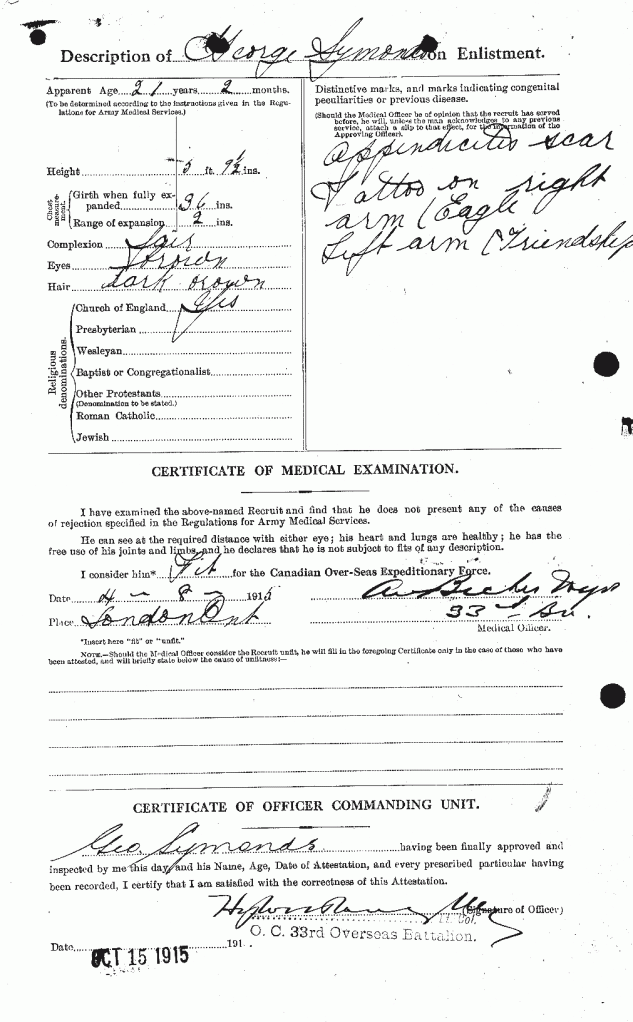 Description of George Symonds on Enlistment.
Apparent Age 21 years 2 months.
(To be determined according to the instructions given in the Regulations for Army Medical Services.)
Height 5 ft. 9½ ins.
Chest measurement.
Girth when fully expanded 36 ins.
Range of expansion 2 ins.
Complexion Fair
Eyes Brown
Hair dark brown
Religious denominations.
Church of England Yes
Presbyterian
Wesleyan
Baptist or Congregationalist
Other Protestants
(Denomination to be stated.)
Roman Catholic
Jewish
Distinctive marks, and marks indicating congenital
peculiarities or previous disease.
(Should the Medical Officer be of opinion that the recruit has served
before, he will, unless the man acknowledges to any previous
service, attach a slip to that effect, for the information of the
Approving Officer).
Appendicitis scar
Tattoo on right
arm (Eagle
Left arm (Friendship
CERTIFICATE OF MEDICAL EXAMINATION.
I have examined the above-named Recruit and find that he does not present any of the causes
of rejection specified in the Regulations for Army Medical Services.
He can see at the required distance with either eye; his heart and lungs are healthy; he has the
free use of his joints and limbs, and he declares that he is not subject to fits of any description.
I consider him* Fit for the Canadian Over-Seas Expeditionary Force.
Date 4 - 8 - 1915
Place London Ont
33rd Bn.
Medical Officer.
*Insert here "fit" or "unfit."
NOTE.—Should the Medical Officer consider the Recruit unfit, he will fill in the foregoing Certificate only in the case of those who have
been attested, and will briefly state below the cause of unfitness:—
CERTIFICATE OF OFFICER COMMANDING UNIT.
Geo. Symonds having been finally approved and
inspected by me this day, and his Name, Age, Date of Attestation, and every prescribed particular having
been recorded, I certify that I am satisfied with the correctness of this Attestation.
(Signature of Officer)
Lt. Col.
O. C. 33rd Overseas Battalion.
Date OCT 15 1915 191